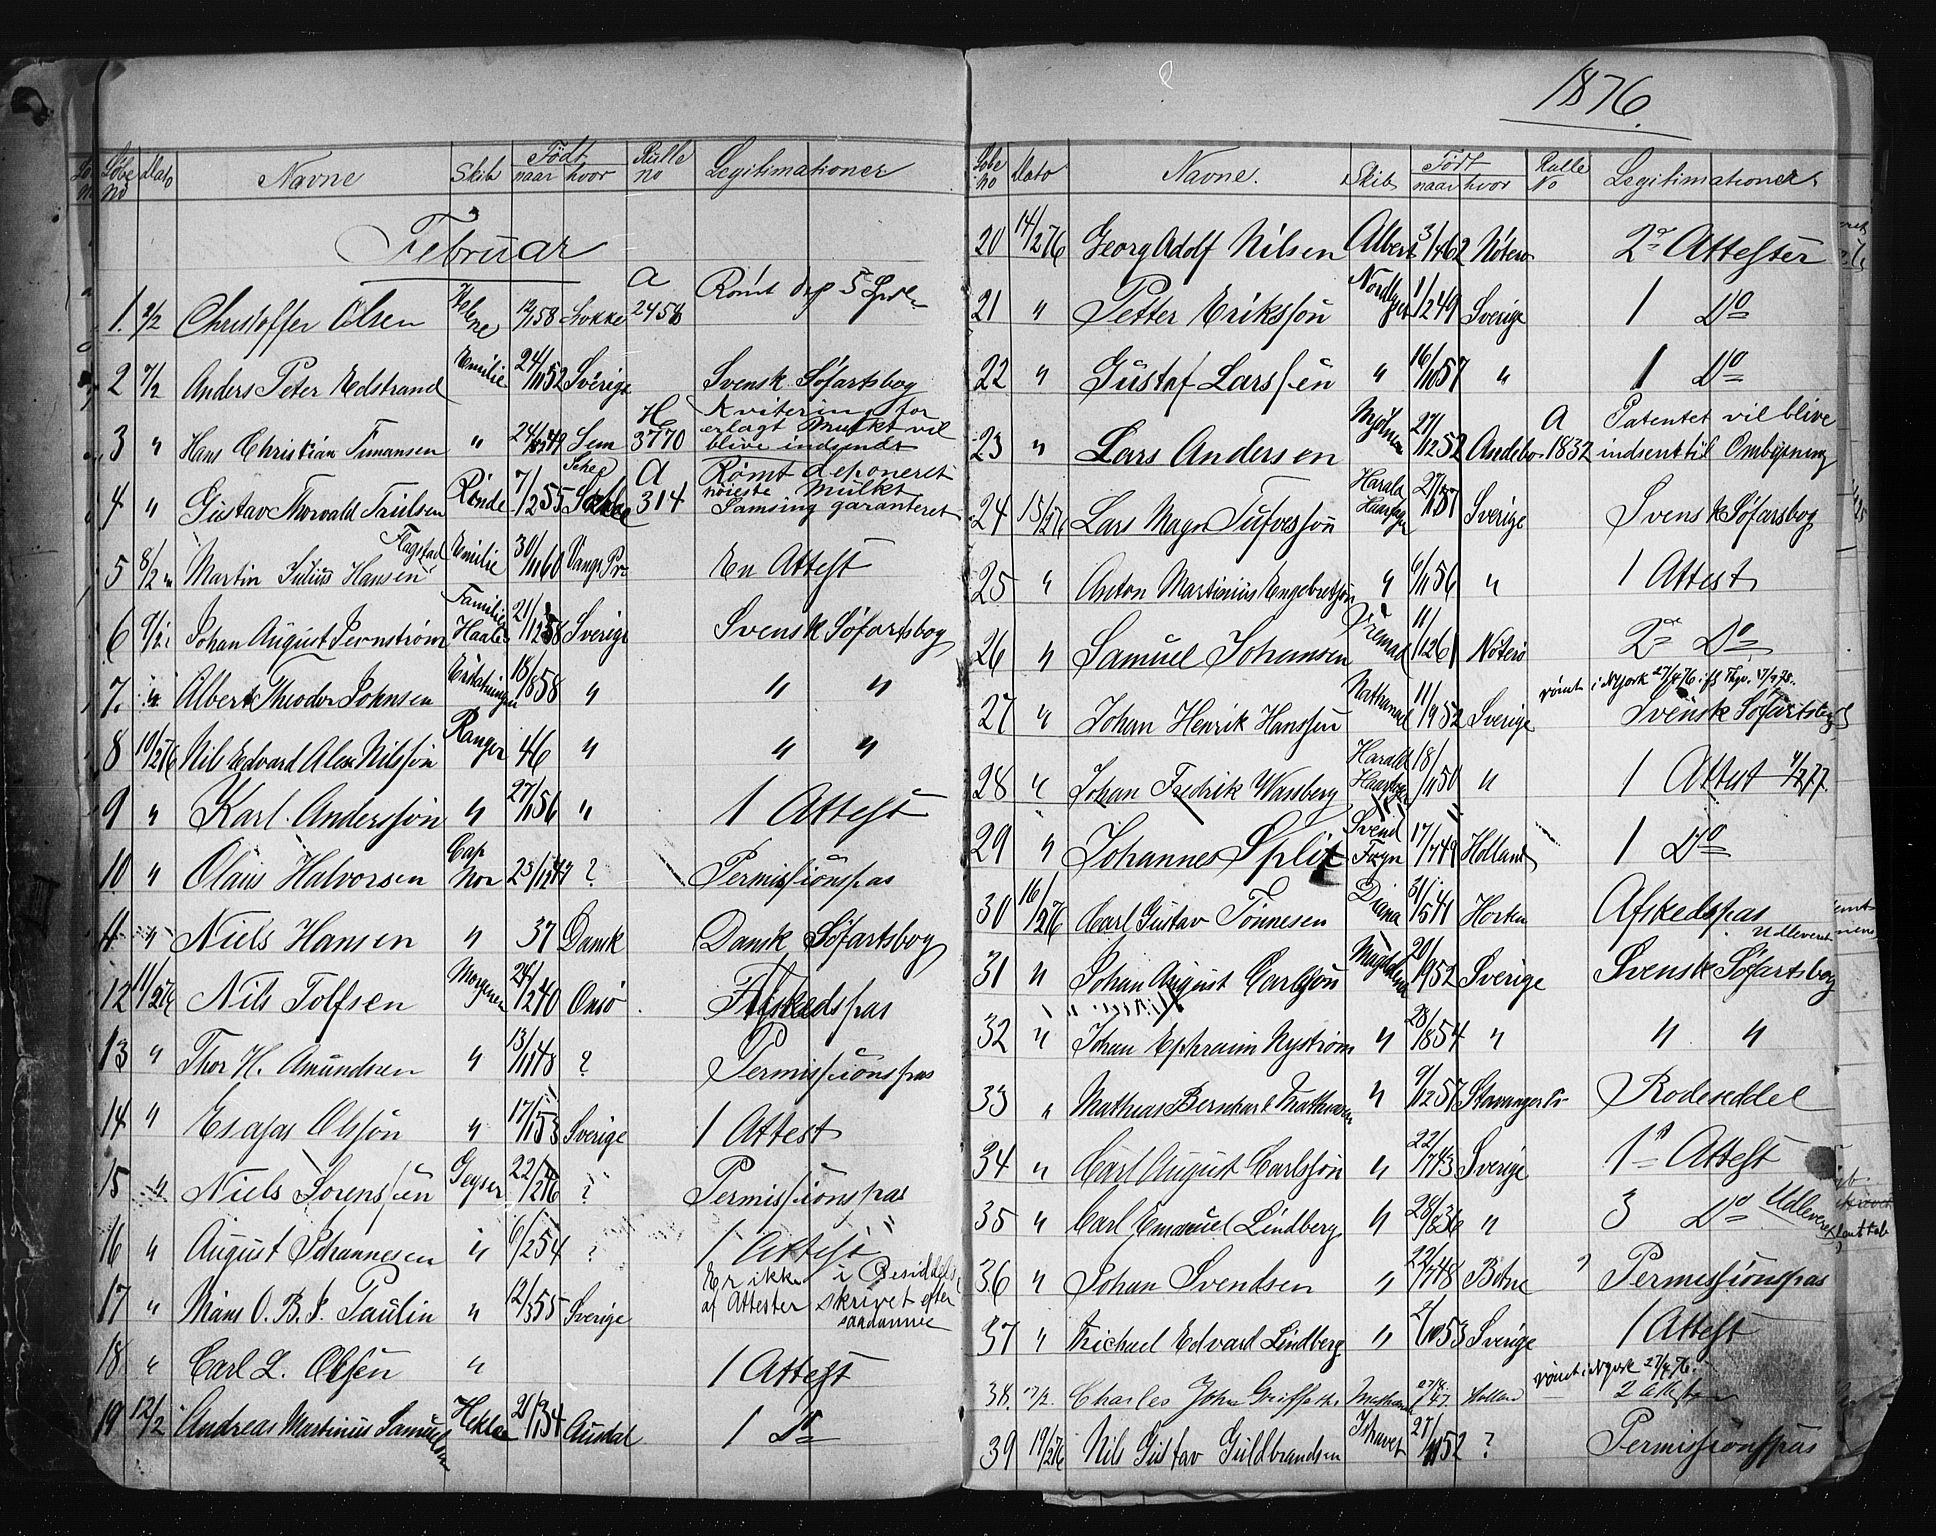 1876
Løbe no Dato Navne Skib Født naar hvor Rulle no Legitimationer
Februar
1. 2/2 Christoffer Olsen Helene 58 A 2458 Rømt
2 7/2 Anders Peter Edstrand Emilie 24/11 52 Sverige Svensk Søfartsbog
3 " Hans Christian Timansen " 49 Sem H 3770 Kvitering for
erlagt Mulkt vil
blive indsendt
4 " Gustav Thorvald Trulsen Rønde 7/2 55 A 314 Rømt deponeret
høieste Mulkt
garanteret
5 8/2 Martin Julius Hansen Flagstad Emilie 30/11 60 Vangs Pr En Attest
6 9/2 Johan August Jernstrøm Familie Haab 21/12 58 Sverige Svensk Søfartsbog
7. " Albert Theodor Johnsen 18/8 58 " " "
8 10/2 76 Nils Edvard Alex Nilssøn Ranger 46 " " "
9 " Karl Anderssøn " 27/11 56 " 1 Attest
10 " Olaus Halvorsen Cap Nor ? Permissionspas
11 " Niels Hansen " 37 Dansk Dansk Søfartsbog
12 11/2 76 Nils Tolfsen Morgenen 24/12 40 Onsø Afskedspas
13 " Thor H. Amundsen " 13/11 48 ? Permissionspas
14 " Esajas Olssøn " 17/1 53 Sverige 1 Attest
15 " Niels Sørenssen Geyser 22/2 46 ? Permissionspas
16 " August Johannesen " 6/2 54 ? 1 Attest
17 " Måns O. B. J. Paulin " 12/3 55 Sverige Er ikke i Besiddelse
af Attester skrivet efter
saadanne
18 " Carl L. Olssen " 1 Attest
19 12/2 Andreas Martinius Samuelsen Hekla 54 Ausdal 1 Do
Løbe no Dato Navne. Skib Født naar hvor Rulle No Legitimationer
20 14/2 76 Georg Adolf Nilsen Albert 62 Nøterø 2de Attester
21 " Petter Erikssøn Nordlyset 1/12 49 Sverige 1 Do
22 " Gustaf Larssen " 16/10 57 " 1 Do
23 " Lars Andersen 27/12 52 Andebo A 1832 Patentet vil blive
indsent til Ombytning
24 15/2 76 Lars Magn Tufvessøn Harald Haarfager 57 Sverige Svensk Søfarsbog
25 " Anton Martinius Engebretsøn " 6/11 56 " 1 Attest
26 " Samuel Johansen Fremad 11/12 61 Nøterø 2de Do
27 " Johan Henrik Hanssen Nathanael 11/9 52 Sverige rømt i NYork 27/4 76
Svensk Søfartsbog
28 " Johan Fredrik Wassberg Harald Haarfager 18/11 50 " 1 Attest 77
29 " Johannes Split Svend Foyn 17/7 49 Holland 1 Do
30 16/2 76 Carl Gustav Tønnesen Diana 31/5 41 Horten Afskedspas
Udleveret
31 " Johan August Carlsson Magdalena 20/9 52 Sverige Svensk Søfartsbog
32 " Johan Ephraim Nystrøm " 28/8 54 " " "
33 " Mathias Bernhart Mathiasen " 9/12 57 Stavanger Rodeseddel
34 " Carl August Carlssøn " 22/7 43 Sverige 1 Attest
35 " Carl Emanuel Lindberg " 28/8 36 " 3 Do Udleveret
36 " Johan Svendsen " 22/7 48 Botne ? Permissionspas
37 " Michael Edvard Lindberg " 2/10 53 Sverige 1 Attest
38. 17/2. Charles John Griffiths 47. Holland rømt i NYork 27/4 76.
2 Attester
39 19/2 76 Nils Gustav Guldbrandsen Ishavet 27/11 52 ? Permissionspas